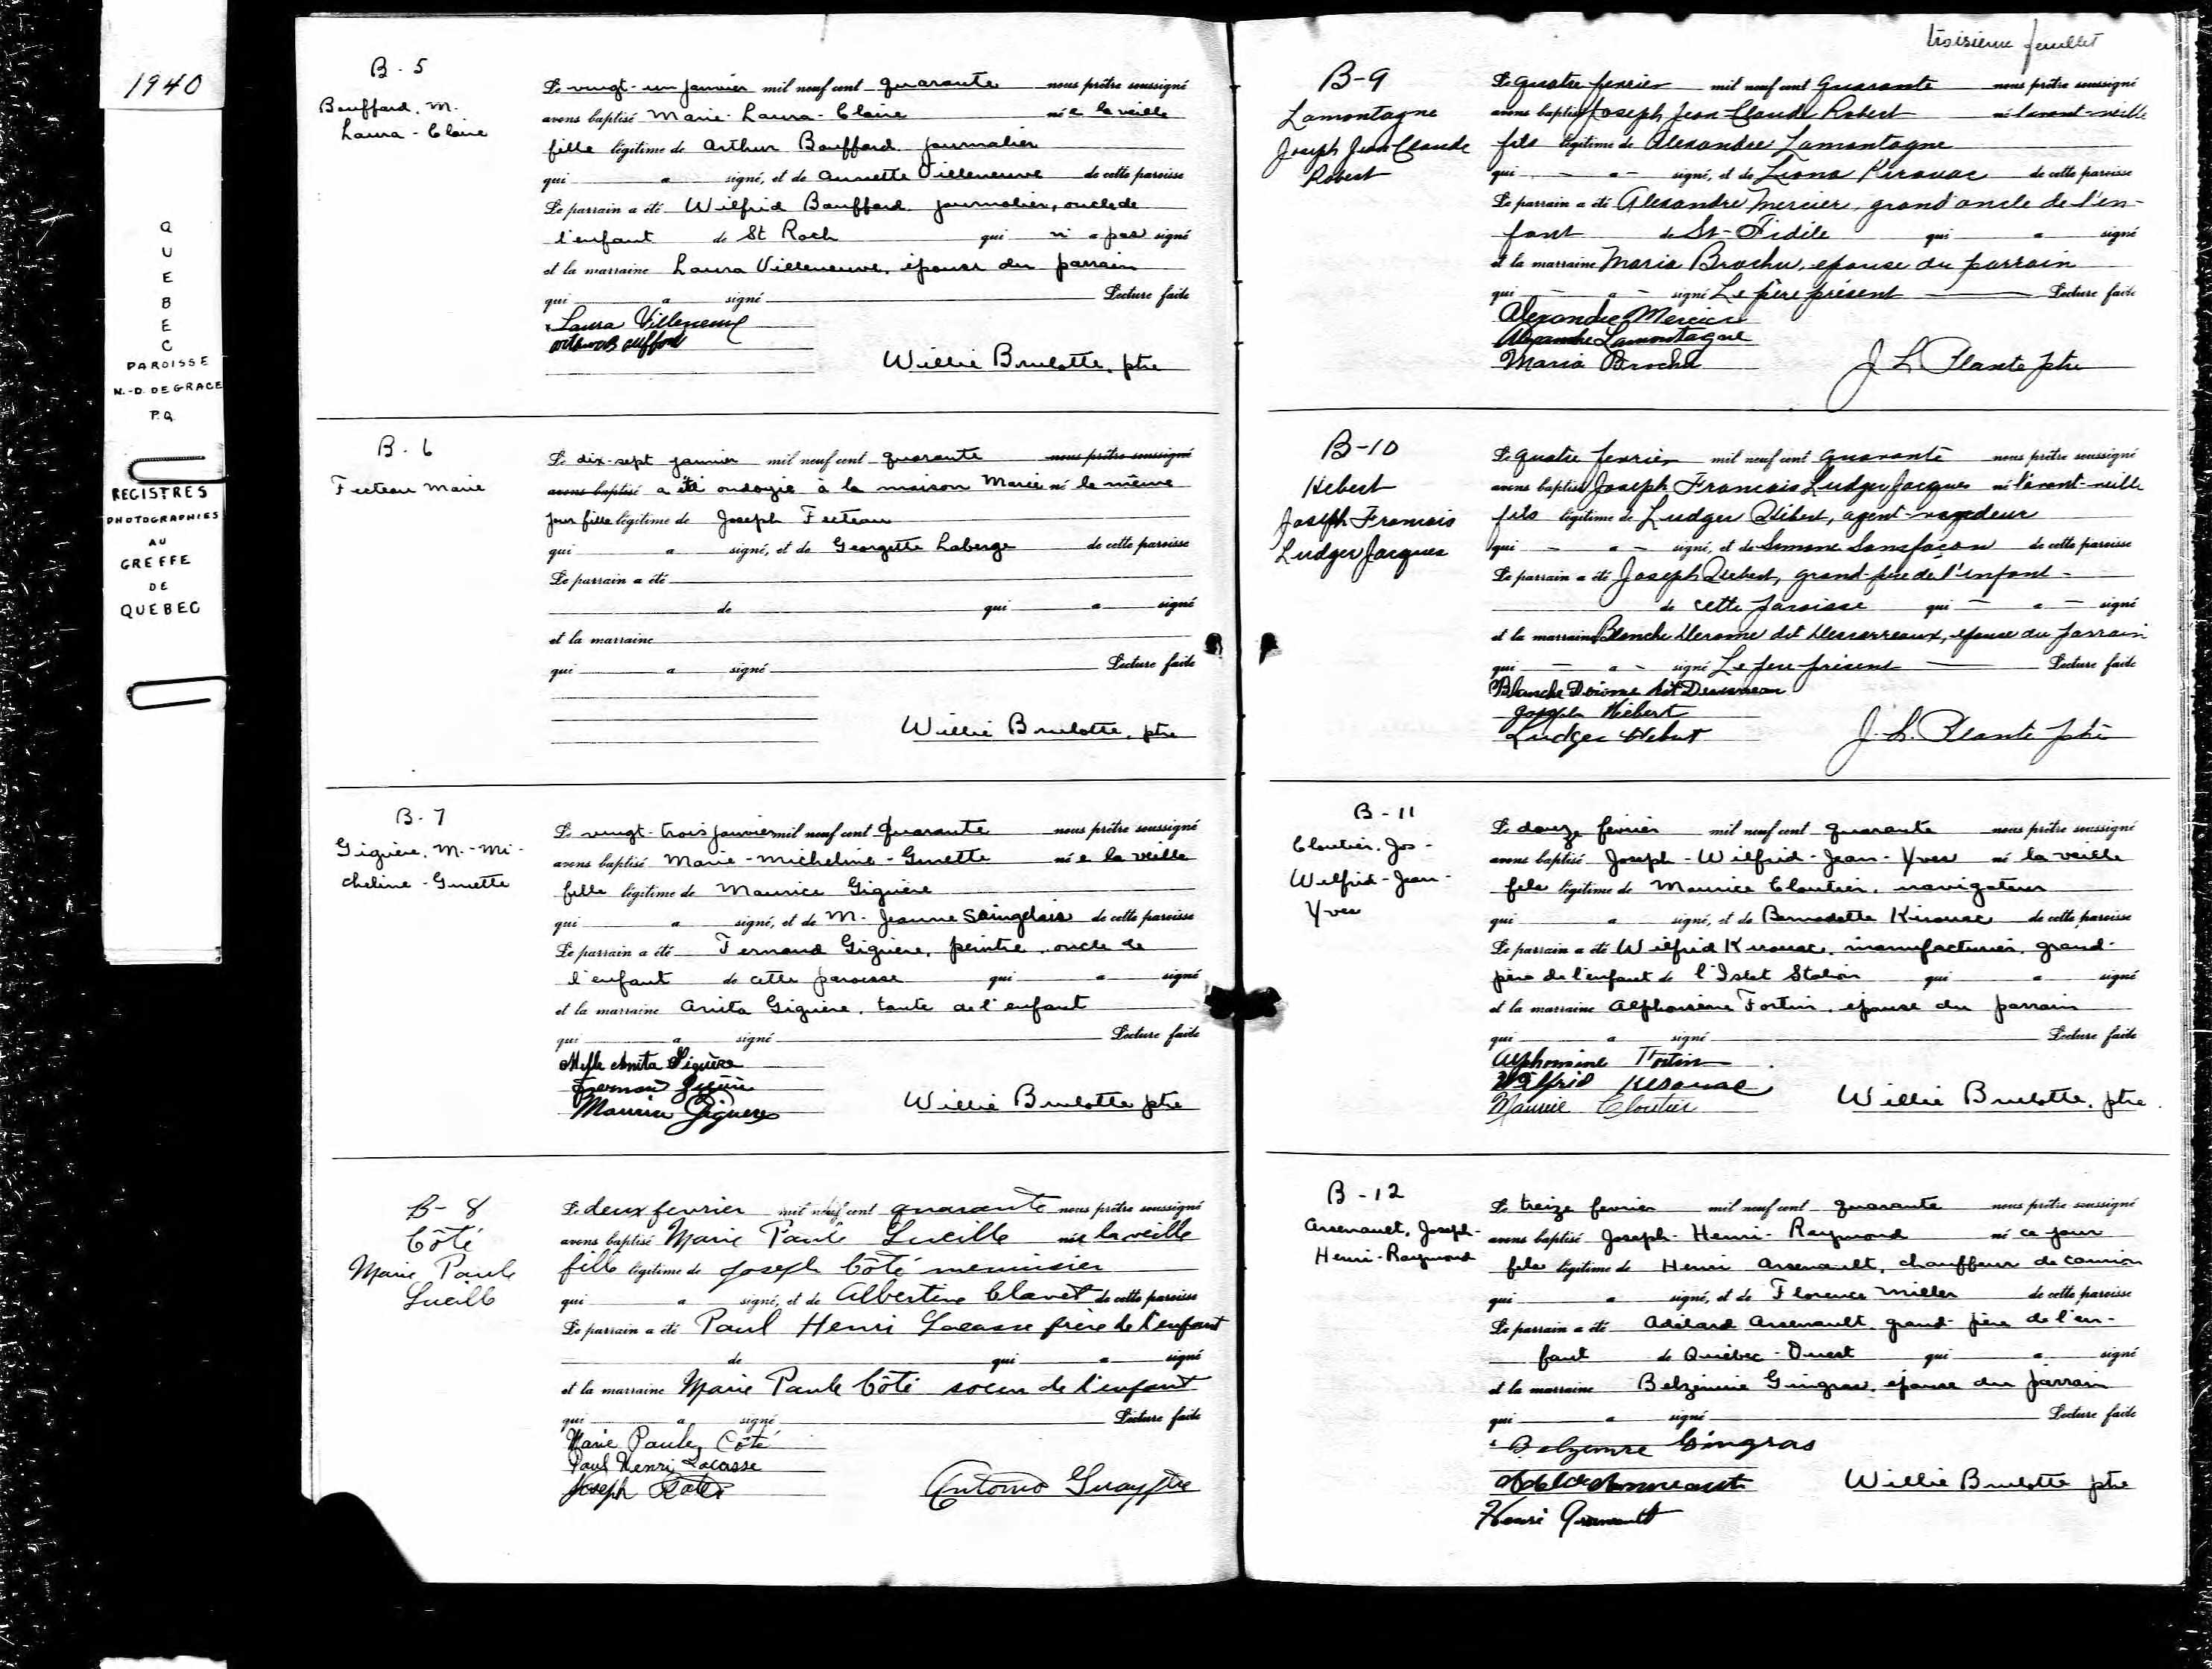 1940
QUEBEC
PAROISSE
N.-D. DE GRACE
P.Q.
REGISTRES
PHOTOGRAPHIES
AU
GREFFE
DE
QUEBEC
B. 5
Bouffard. M.
Laura-Claire
Le vingt-un janvier mil neuf cent quarante nous prêtre soussigné
avons baptisé Marie-Laura-Claire née la veille
fille légitime de Arthur Bouffard journalier
qui a signé, et de Annette Villeneuve de cette paroisse
Le parrain a été Wilfrid Bouffard journalier, oncle de
l'enfant de St Roch qui n'a pas signé
et la marraine Laura Villeneuve, épouse du parrain
qui a signé Lecture faite
Laura Villeneuve
Willie Brulotte, ptre
B. 6
Fecteau Marie
Le dix-sept janvier mil neuf cent quarante nous prêtre soussigné
avons baptisé a été ondoyée à la maison Marie né le même
jour fille légitime de Joseph Fecteau
qui a signé, et de Georgette Laberge de cette paroisse
Le parrain a été
de qui a signé
et la marraine
qui a signé Lecture faite
Willie Brulotte, ptre
B. 7
Giguère, M.-Mi-
cheline-Ginette
Le vingt-trois janvier mil neuf cent quarante nous prêtre soussigné
avons baptisé Marie-Micheline-Ginette née la veille
fille légitime de Maurice Giguère
qui a signé, et de M. Jeanne Saingelais de cette paroisse
Le parrain a été Fernand Giguère, peintre, oncle de
l'enfant de cette paroisse qui a signé
et la marraine Anita Giguère, tante de l'enfant
qui a signé Lecture faite
Melle Anita Giguère
Fernand Giguère
Maurice Giguère
Willie Brulotte ptre
B-8
Côté
Marie Paule
Lucille
Le deux fevrier mil neuf cent quarante nous prêtre soussigné
avons baptisé Marie Paule Lucille née la veille
fille légitime de Joseph Côté menuisier
qui a signé, et de Albertine Clavet de cette paroisse
Le parrain a été Paul Henri Lacasse frère de l'enfant
de qui a signé
et la marraine Marie Paule Côté soeur de l'enfant
qui a signé Lecture faite
Marie Paule Côté
Paul Henri Lacasse
Joseph Coté
Antonio Guay ptre
troisieme feuillet
B-9
Lamontagne
Joseph Jean Claude
Robert
Le quatre fevrier mil neuf cent Quarante nous prêtre soussigné
avons baptisé Joseph Jean-Claude Robert né l'avant-veille
fils légitime de Alexandre Lamontagne
qui a signé, et de Liona Kirouac de cette paroisse
Le parrain a été Alexandre Mercier, grand'oncle de l'en-
fant de St-Fidèle qui a signé
et la marraine Maria Brochu, epouse du parrain
qui a signé Le père présent Lecture faite
Alexandre Mercier
Alexandre Lamontagne
Maria Brochu
J. L. Plante ptre
B-10
Hebert
Joseph Francois
Ludger Jacques
Le quatre fevrier mil neuf cent Quarante nous prêtre soussigné
avons baptisé Joseph Francois Ludger Jacques né l'avant-veille
fils légitime de Ludger Hébert, agent-vendeur
qui a signé, et de Simone Sansfaçon de cette paroisse
Le parrain a été Joseph Hebert, grand-père de l'enfant
de cette paroisse qui a signé
et la marraine Blanche Derome dit Descarreaux, epouse du parrain
qui a signé Le père présent Lecture faite
Blanche Derome dit
Joseph Hébert
Ludger Hébert
J. L. Plante ptre
B-11
Cloutier, Jos-
Wilfrid-Jean-
Yves
Le douze fevrier mil neuf cent quarante nous prêtre soussigné
avons baptisé Joseph-Wilfrid-Jean-Yves né la veille
fils légitime de Maurice Cloutier, navigateur
qui a signé, et de Bernadette Kirouac de cette paroisse
Le parrain a été Wilfrid Kirouac, manufacturier, grand-
père de l'enfant de l'Islet Station qui a signé
et la marraine Alphonsine Fortin, epouse du parrain
qui a signé Lecture faite
Alphonsine Fortin
Wilfrid Kirouac
Maurice Cloutier
Willie Brulotte, ptre
B-12
Arsenault, Joseph-
Henri-Raymond
Le treize fevrier mil neuf cent quarante nous prêtre soussigné
avons baptisé Joseph-Henri-Raymond né ce jour
fils légitime de Henri Arsenault, chauffeur de camion
qui a signé, et de Florence Miller de cette paroisse
Le parrain a été Adélard Arsenault, grand-père de l'en-
fant de Québec-Ouest qui a signé
et la marraine Belzémire Gingras, epouse du parrain
qui a signé Lecture faite
Belzemire Gingras
Henri Arsenault
Willie Brulotte ptre